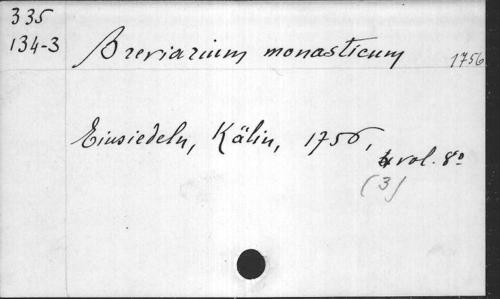 335
134-3
Breviarium monasticum
1756
Einsiedeln, Kälin, 1756,
4 vol. 8º
(3)